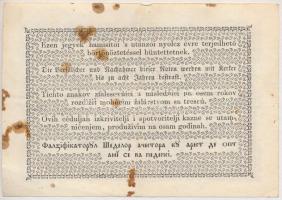 Ezen jegyek hamisitói s utánzói nyolcz évre terjedhető
börtönöztetéssel büntettetnek.
Die Verfälscher und Nachahmer dieser Noten werden mit Kerker
bis zu acht Jahren bestraft.
Tichto znakov zfalšovníci a násladníci po osem rokov
rozčúzí mohúcím žalárstvom sa trescú.
Ovih ceduljah izkrivitelji i spotvoritelji kazne se utam-
ničenjem, produživim na osam godinah.
Фалзіфікаторул Шеділор ачестора ку арест де опт
ані се ва педепсі.